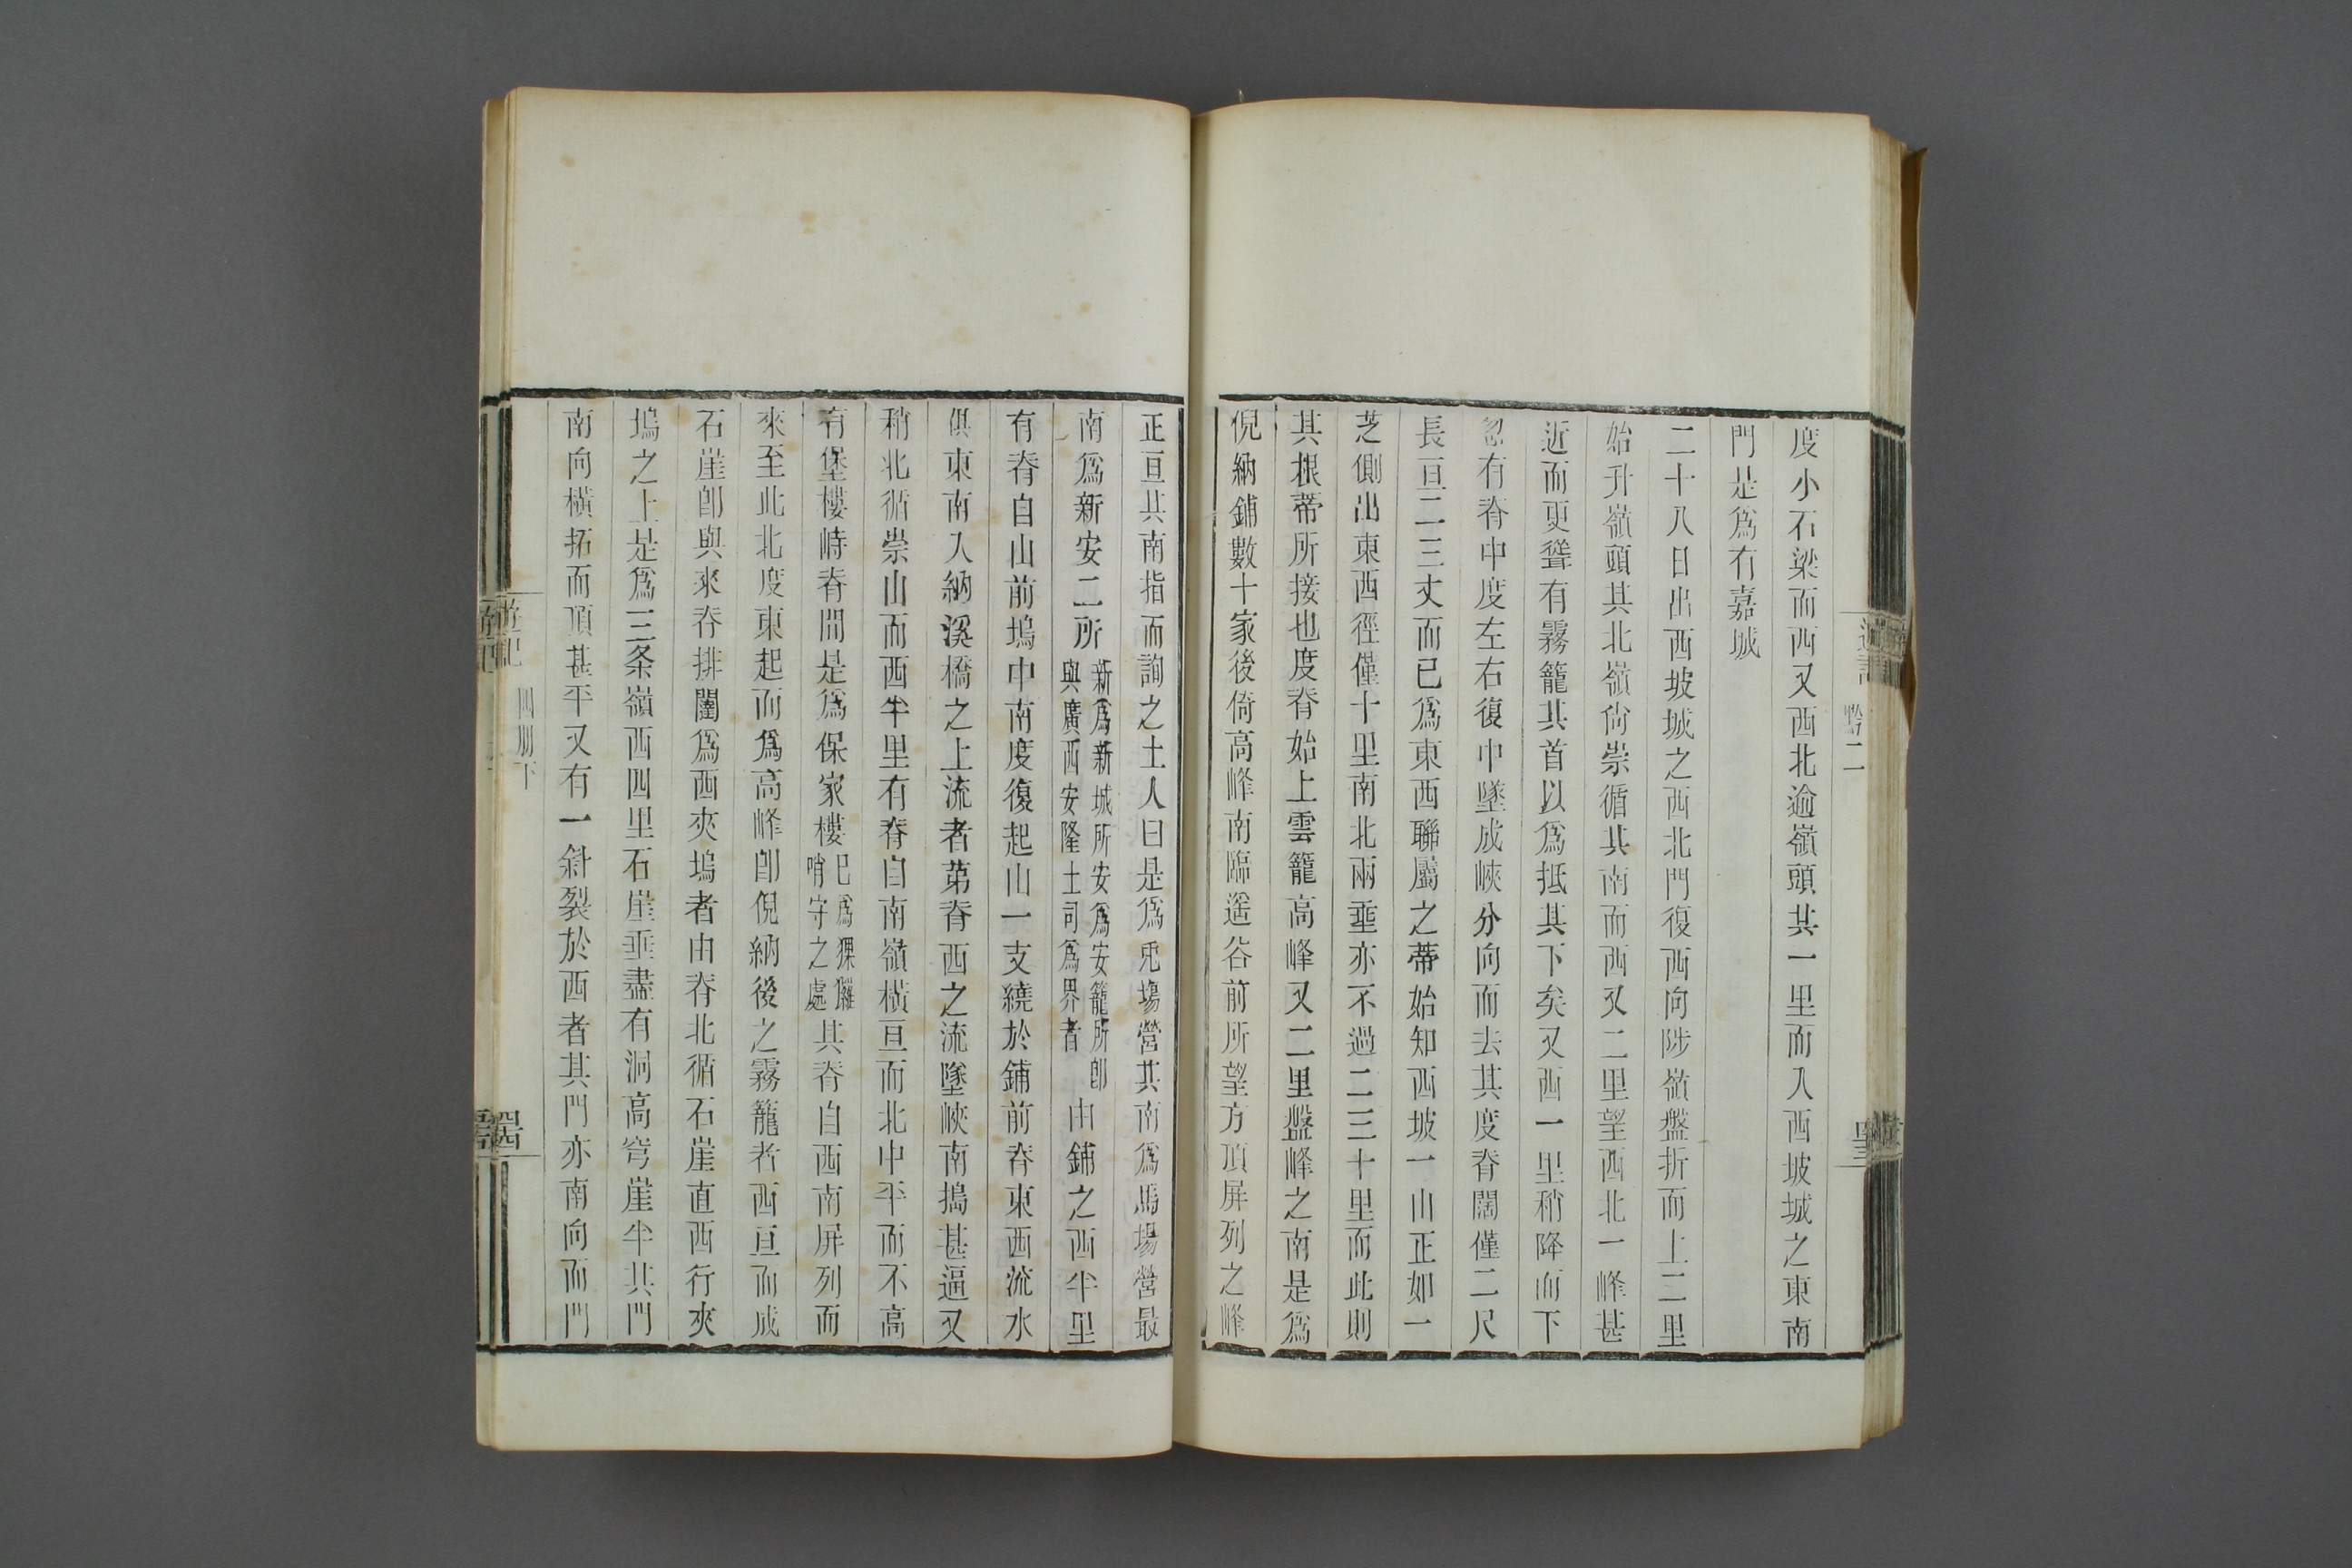 度小石梁而西又西北逾嶺頭共一里而入西坡城之東南
門是爲有嘉城
二十八日出西坡城之西北門復西向陟嶺盤折而上二里
始升嶺頭其北嶺尙崇循其南而西又二里望西北一峰甚
近而更聳有霧籠其首以爲抵其下矣又西一里稍降而下
忽有脊中度左右復中墜成峽分向而去其度脊闊僅二尺
長亘二三丈而已爲東西聯屬之蒂始知西坡一山正如一
芝側出東西徑僅十里南北兩垂亦不過二三十里而此則
其根蒂所接也度脊始上雲籠高峰又二里盤峰之南是爲
倪納鋪數十家後倚高峰南臨遥谷前所望方頂屏列之峰
遊記 黔二
正亘其南指而詢之土人曰是爲兎塲營其南爲馬塲營最
南爲新安二所
新爲新城所安爲安籠所卽
與廣西安隆土司爲界者
由鋪之西半里
有脊自山前塢中南度復起山一支繞於鋪前脊東西流水
俱東南入納溪橋之上流者第脊西之流墜峽南搗甚逼又
稍北循崇山而西半里有脊自南嶺橫亘而北中平而不高
有堡樓峙脊間是爲保家樓
已爲猓玀
哨守之處
其脊自西南屏列而
來至此北度東起而爲高峰卽倪納後之霧籠者西亘而成
石崖卽與來脊排闥爲西夾塢者由脊北循石崖直西行夾
塢之上是爲三条嶺西四里石崖垂盡有洞高穹崖半其門
南向橫拓而頂甚平又有一斜裂於西者其門亦南向而門
遊記 四册下